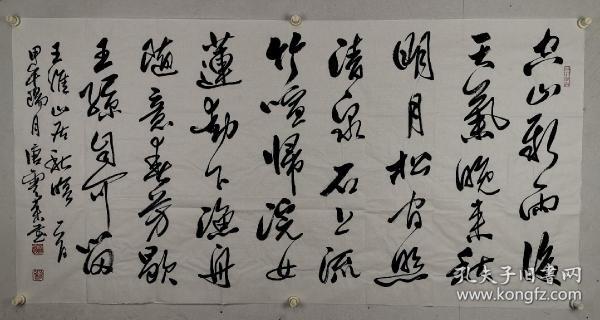 空山新雨後
天氣晚来秋
明月松间照
清泉石上流
竹喧歸浣女
蓮動下漁舟
随意春芳歇
王孫自可留
王維山居秋暝一首
甲午端月唐雲来书
孔夫子旧書网
www.kongfz.com